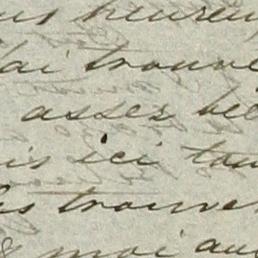 us heureu
ai trouvé
assez be
is ici tou
as trouver
moi au